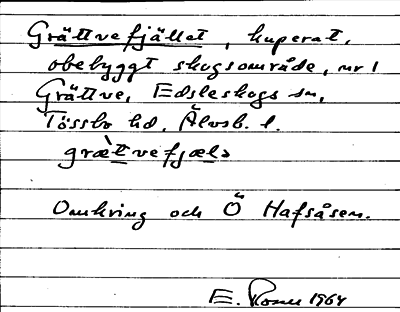 Grättvefjället, kuperat,
obebyggt skogsområde, nr 1
Grättve, Edsleskogs sn,
Tössbo hd, Älvsb. l.
grætvefjælə
Omkring och Ö Hafsåsen.
E. 1964